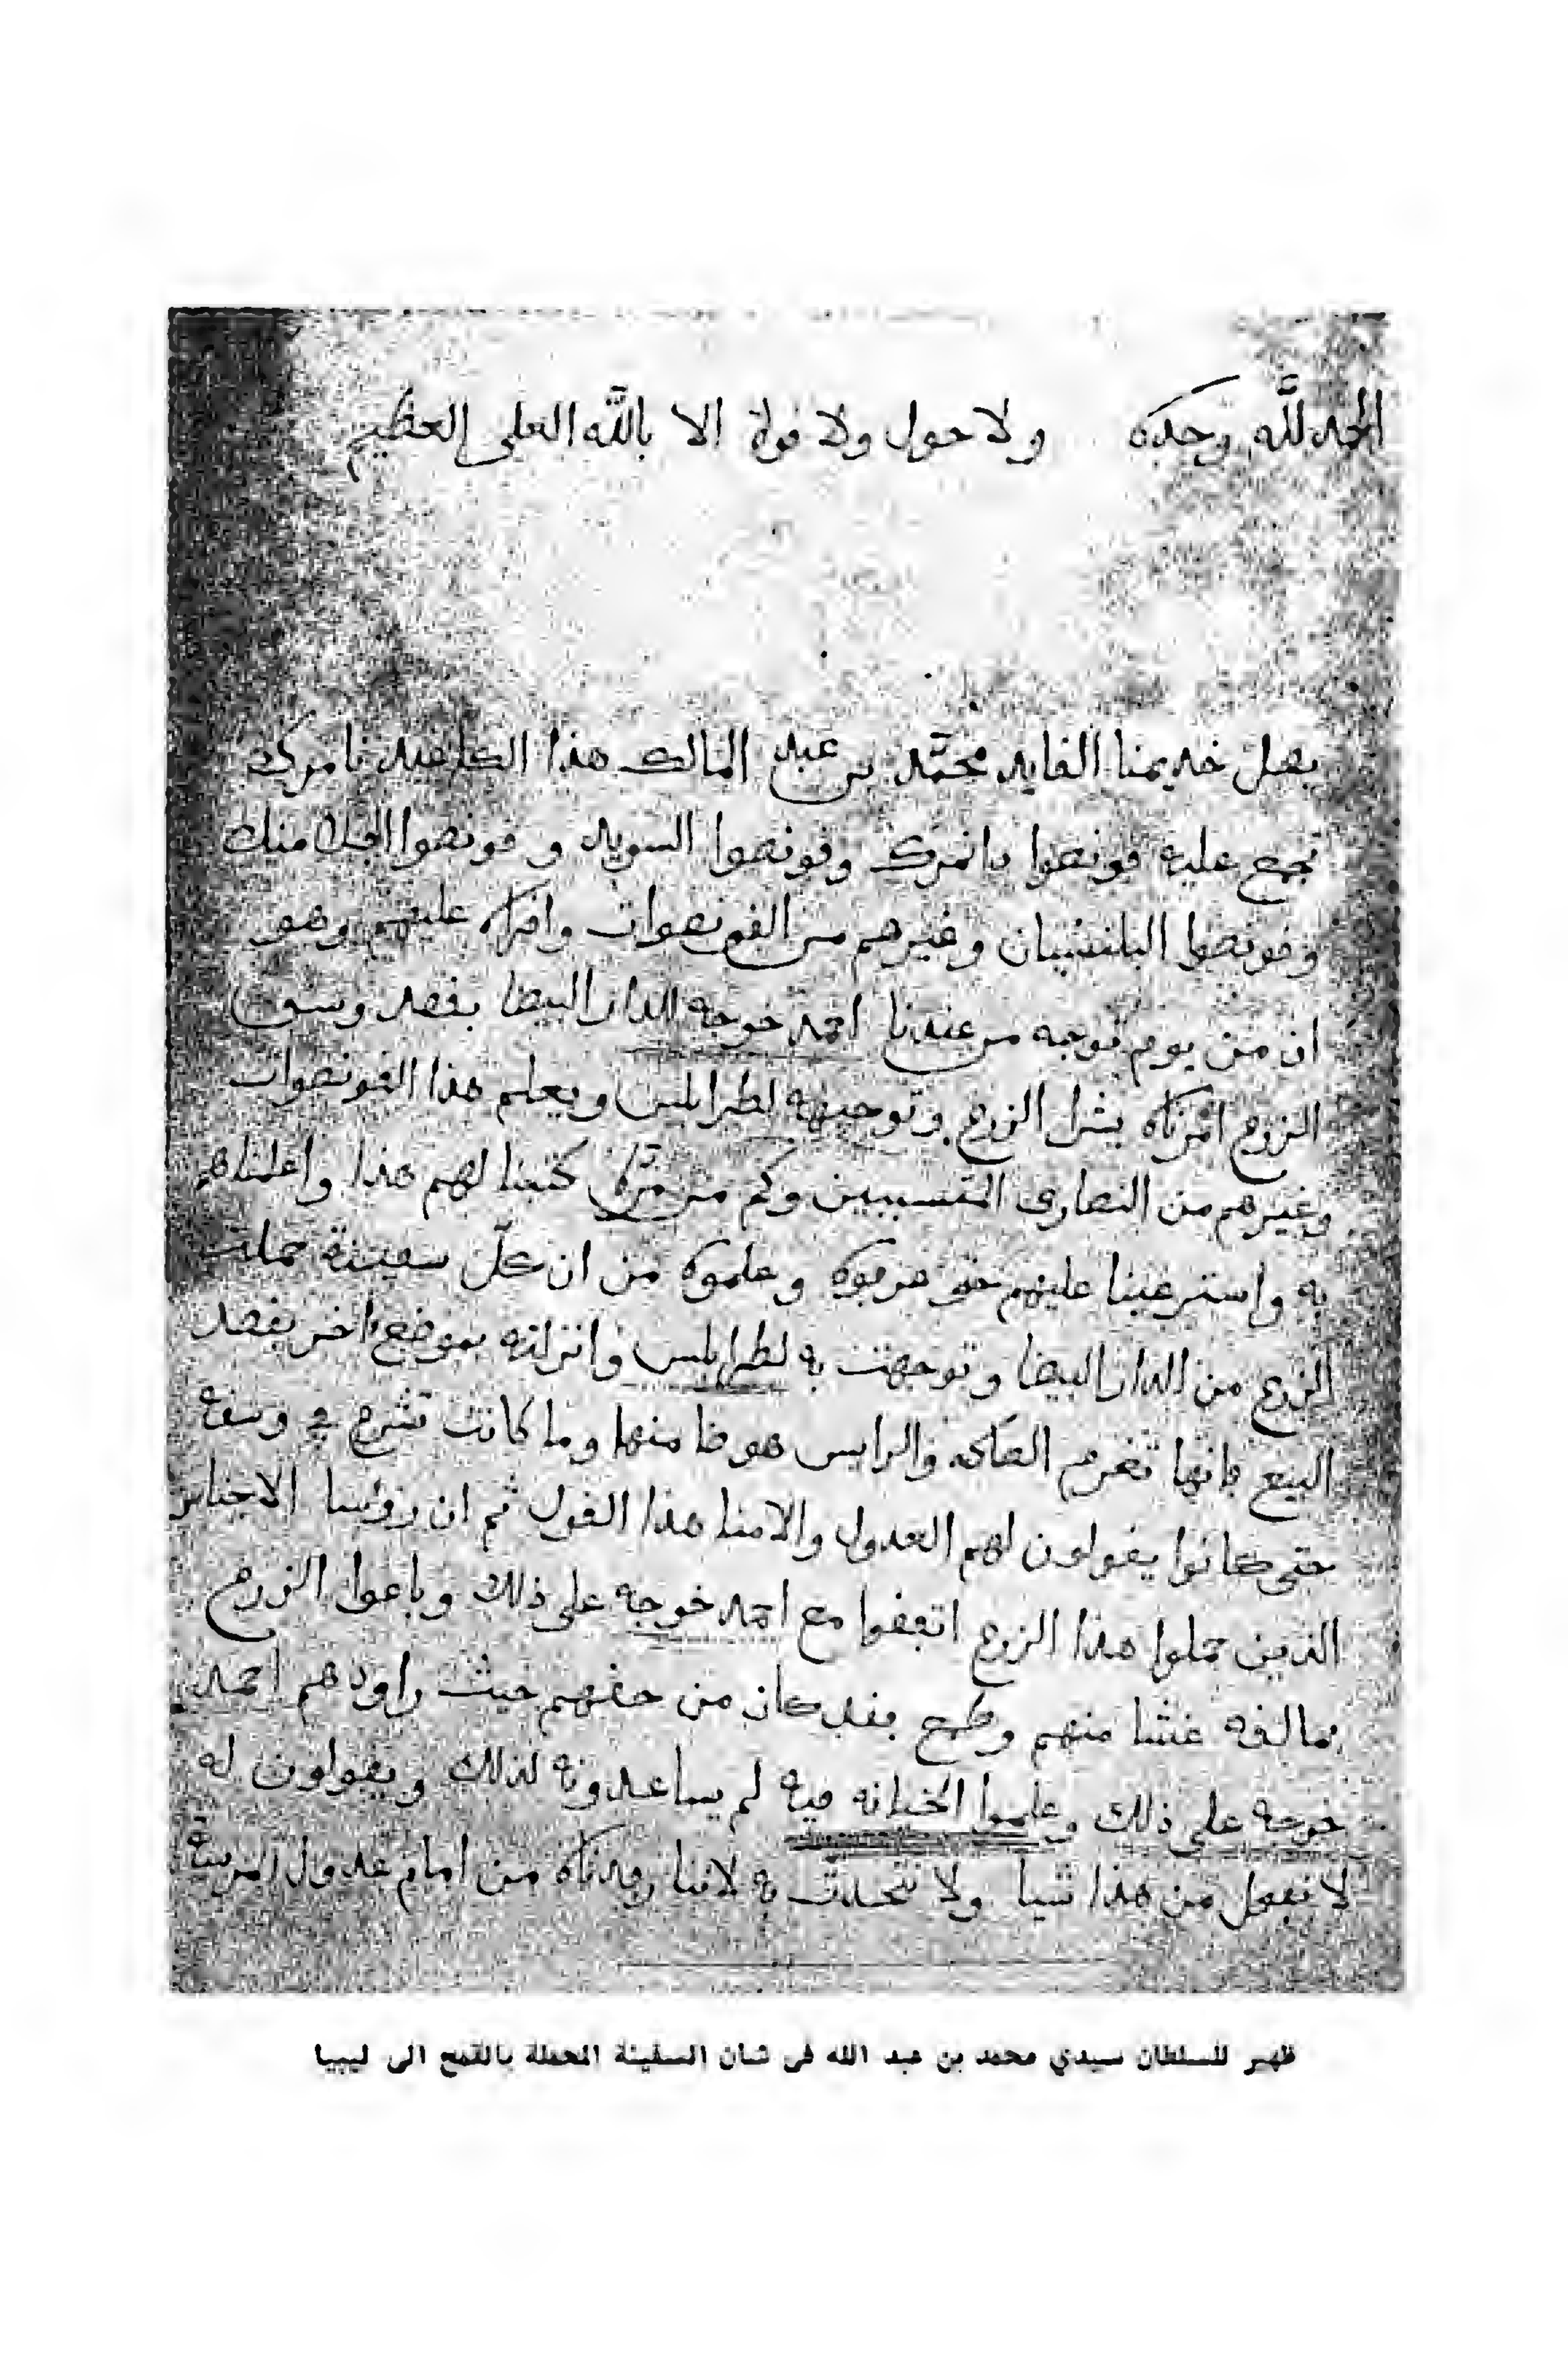 الحمد لله وحده ولا حول ولا قوة الا بالله العلي العظيم
يصل خديمنا القايد محمد بن عبد المالك هذا الكاغيد نامرك
تجمع عليه قونصوا دانمرك وقونصوا السويد و قونصوا
وقونصوا البلنسيان وغيرهم من القونصوات واقراه عليهم وهو
ان من يوم توجه من عندنا احمد خوجه الدار البيضا بقصد وسق
الزرع امرناه يشرا الزرع وتوجيهه لطرابلس ويعلم هذا القونصوات
وغيرهم من النصارى المتسببين وكم من مرة كتبنا لهم هذا واعلمناهم
به واسترعينا عليهم حتى عرفوه وعلموه من ان كل سفينة حملت
الزرع من الدار البيضا وتوجهت به لطرابلس وانزلته بموضع اخر بقصد
البيع فانها تغرم الصاكه والرايس هوضا منها وما كانت تشرع في وسقه
حتى كانوا يقولون لهم العدول والامنا هذا القول ثم ان رؤسا الاجناس
الذين حملوا هذا الزرع اتفقوا مع احمد خوجه على ذلك وباعوا الزرع
بمالقه غشا منهم وطمع فقد كان من حقهم حيث راودهم احمد
خوجه على ذلك وعلموا الخيانه فيه لم يساعدونه لذلك ويقولون له
لا نفعل من هذا شيا ولا نتحدث به لاننا رفدناه من امام عدول المرسة
ظهير للسلطان سيدي محمد بن عبد الله في شان السفينة المحملة بالقمح الى ليبيا